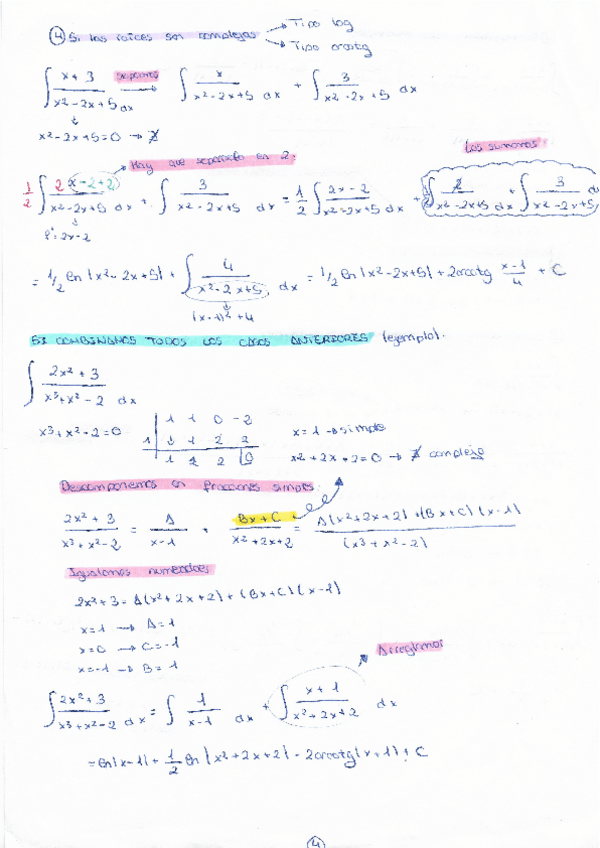 ④ Si las raíces son complejas → Tipo log
→ Tipo arcotg
∫ x+3 / x²-2x+5 dx separamos → ∫ x / x²-2x+5 dx + ∫ 3 / x²-2x+5 dx
x²-2x+5=0 → ∄
Hay que separarlo en 2.
Los sumamos
1/2 ∫ 2x-2+2 / x²-2x+5 dx + ∫ 3 / x²-2x+5 dx = 1/2 ∫ 2x-2 / x²-2x+5 dx + ∫ 2 / x²-2x+5 dx + ∫ 3 / x²-2x+5
f'=2x-2
= 1/2 ln |x²-2x+5| + ∫ 4 / x²-2x+5 dx = 1/2 ln |x²-2x+5| + 2arcotg x-1 / 4 + C
(x-1)²+4
COMBINAMOS TODOS LOS CASOS ANTERIORES (ejemplo).
∫ 2x²+3 / x³+x²-2 dx
x³+x²-2=0
1 1 0 -2
1 1 2 2
1 2 2 0
x=1 → simple
x²+2x+2=0 → ∄ compleja
Descomponemos en fracciones simples.
2x²+3 / x³+x²-2 = A / x-1 + Bx+C / x²+2x+2 = A(x²+2x+2)+(Bx+C)(x-1) / (x³+x²-2)
Igualamos numeradores
2x²+3=A(x²+2x+2)+(Bx+C)(x-1)
x=1 → A=1
x=0 → C=-1
x=-1 → B=1
Arreglamos
∫ 2x²+3 / x³+x²-2 dx = ∫ 1 / x-1 dx + ∫ x+1 / x²+2x+2 dx
=ln|x-1|+ 1/2 ln |x²+2x+2| - 2arcotg(x+1)+C
4